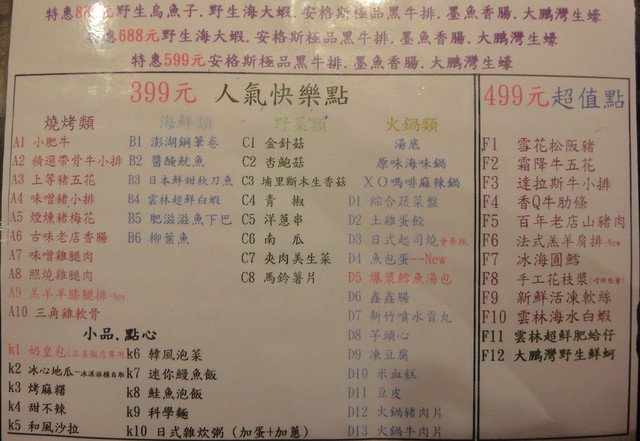 特惠888元野生烏魚子.野生海大蝦.安格斯極品黑牛排.墨魚香腸.大鵬灣生蠔
特惠688元野生海大蝦.安格斯極品黑牛排.墨魚香腸.大鵬灣生蠔
特惠599元安格斯極品黑牛排.墨魚香腸.大鵬灣生蠔
399元 人氣快樂點
燒烤類
A1 小肥牛
A2 精選帶骨牛小排
A3 上等豬五花
A4 味噌豬小排
A5 煙燻豬梅花
A6 古味老店香腸
A7 味噌雞腿肉
A8 照燒雞腿肉
A9 羔羊羊膝腿排-New
A10 三角雞軟骨
海鮮類
B1 澎湖鋼筆卷
B2 醬醃魷魚
B3 日本鮮甜秋刀魚
B4 雲林超鮮白蝦
B5 肥滋滋魚下巴
B6 柳葉魚
野菜類
C1 金針菇
C2 杏鮑菇
C3 埔里斷木生香菇
C4 青 椒
C5 洋蔥串
C6 南 瓜
C7 夾肉美生菜
C8 馬鈴薯片
火鍋類
湯底
原味海味鍋
XO嗎啡麻辣鍋
D1 綜合蔬菜盤
D2 土雞蛋餃
D3 日式起司燒會牽絲.
D4 魚包蛋--New
D5 爆漿鱈魚湯包
D6 鑫鑫腸
D7 新竹噴水貢丸
D8 芋頭心
D9 凍豆腐
D10 米血糕
D11 豆皮
D12 火鍋豬肉片
D13 火鍋牛肉片
小品.點心
k1 奶皇包(五星飯店專用)
k2 冰心地瓜-冰淇淋櫃自取
k3 烤麻糬
k4 甜不辣
k5 和風沙拉
k6 韓風泡菜
k7 迷你鰻魚飯
k8 鮭魚泡飯
k9 科學麵
k10 日式雜炊粥 (加蛋+加蔥)
499元超值點
F1 雪花松阪豬
F2 霜降牛五花
F3 達拉斯牛小排
F4 香Q牛肋條
F5 百年老店山豬肉
F6 法式羔羊肩排-New
F7 冰海圓鱈
F8 手工花枝漿(嚐鮮限量)
F9 新鮮活凍軟絲
F10 雲林海水白蝦
F11 雲林超鮮肥蛤仔
F12 大鵬灣野生鮮蚵